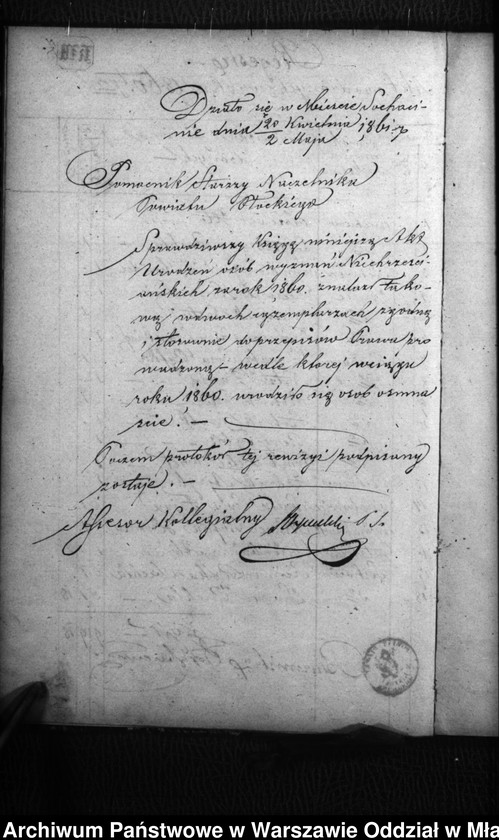 Działo się w Mieście Sochaci-
nie dnia 20 Kwietnia / 2 Maja 1861 r.
Pomocnik Starszy Naczelnika
Powiatu Płockiego
Sprawdziwszy Księgę niniejszą Akt
Urodzeń osób wyznań Niechrześci-
ańskich za rok 1860. znalazł tako-
wą w dwóch egzemplarzach zgodną
i stosownie do przepisów Prawa pro
wadzoną — wedle której w ciągu
roku 1860. urodziło się osób ośmna
ście. —
Poczem protokół tej rewizyi podpisany
zostaje. —
Assesor Kollegialny
Archiwum Państwowe w Warszawie Oddział w Mła